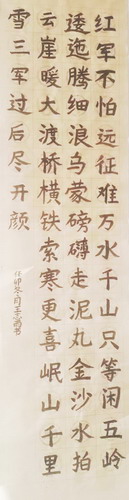 红军不怕远征难万水千山只等闲五岭
逶迤腾细浪乌蒙磅礴走泥丸金沙水拍
云崖暖大渡桥横铁索寒更喜岷山千里
雪三军过后尽开颜
卯冬月王书